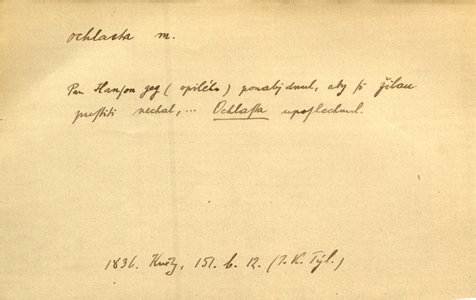 ochlasta m.
Pan Hanſon geg (opilého) ponabjdnul, aby ſi žilau
puſtiti nechal,... Ochlaſta upoſlechnul.
1836. Květy, 151. b. 12. (J. K. Tyl.)